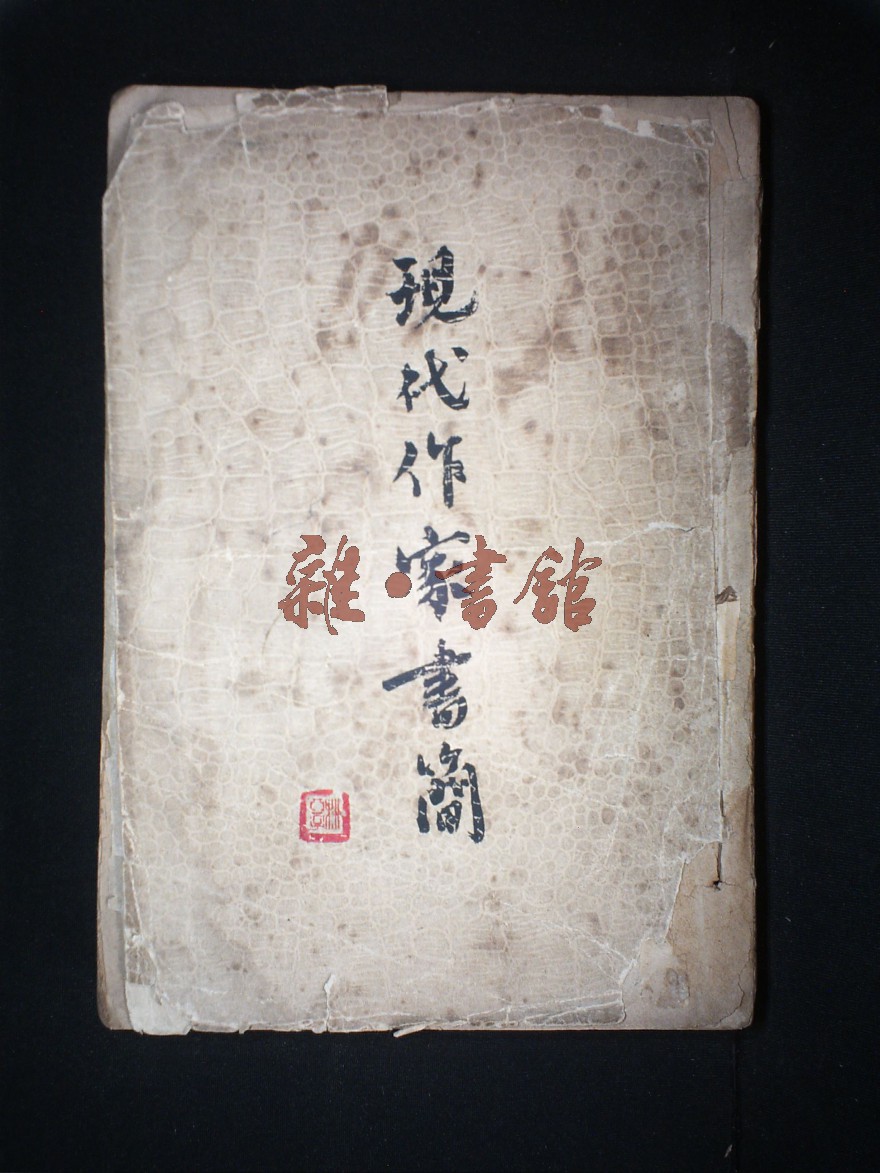 現代作家書簡
雜·書館